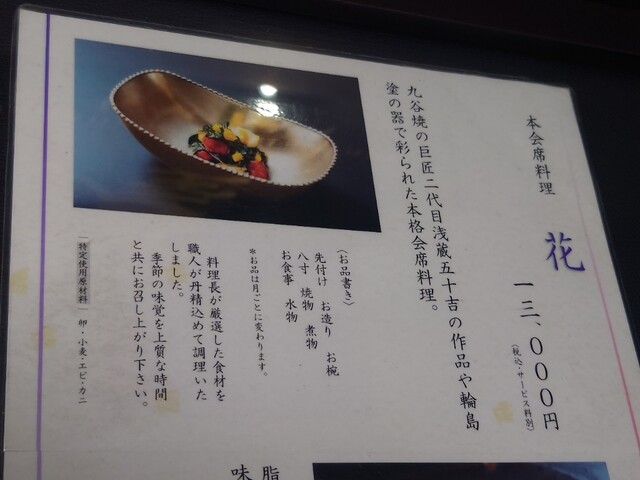 本会席料理
花
一三、〇〇〇円
(税込・サービス料別)
九谷焼の巨匠二代目浅蔵五十吉の作品や輪島
塗の器で彩られた本格会席料理。
〈お品書き〉
先付け お造り お椀
八寸 焼物 煮物
お食事 水物
*お品は月ごとに変わります。
料理長が厳選した食材を
職人が丹精込めて調理いた
しました。
季節の味覚を上質な時間
と共にお召し上がり下さい。
[特定使用原材料] 卵・小麦・エビ・カニ
脂
味